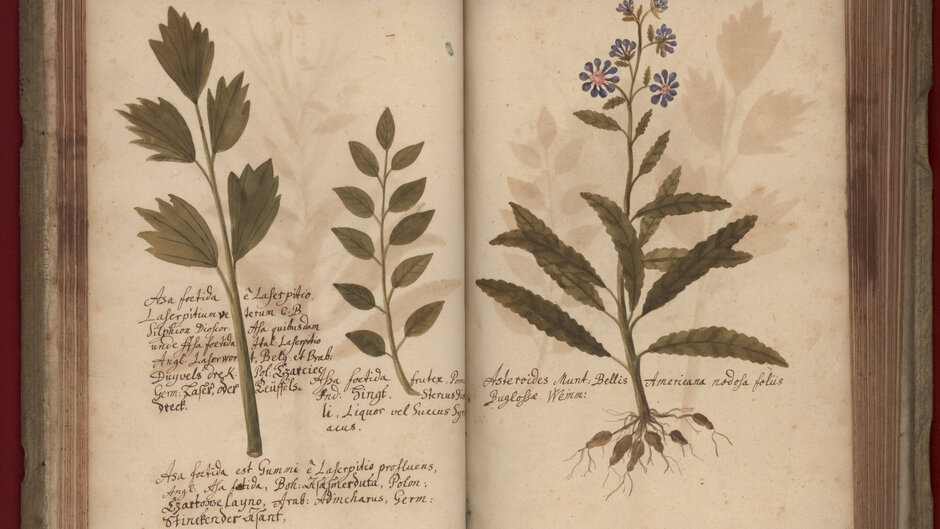 Asa foetida è Laserpitio.
Laserpitium veterum C.B.
Silphion Dioscor. Asa quibusdam
unde Asa foetida Ital: Laserpitio
Angl: Laserwort, Belg: et Brab:
Duyvels dreck. Pol: Czarcieg
Germ: Laser, oder Teüffels-
dreck.
Asa foetida frutex.
Ind: Hingi.
li, Liquor vel Succus Sy
acus.
Asa foetida est Gummi è Laserpitio profluens,
Angl: Asa fetida, Boh: Polon:
Czartowe Layno, Arab: Germ:
Stinckender Asant,
Asteroides Munt: Bellis Americana nodosa foliis
Buglossæ